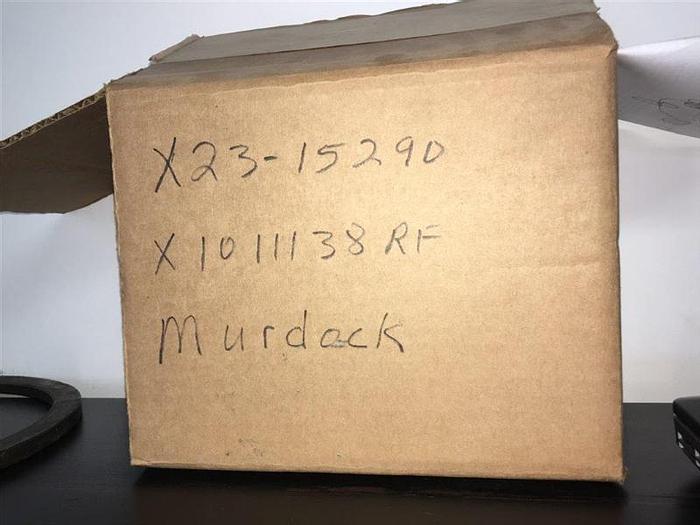 X23-15290
X1011138RF
Murdock